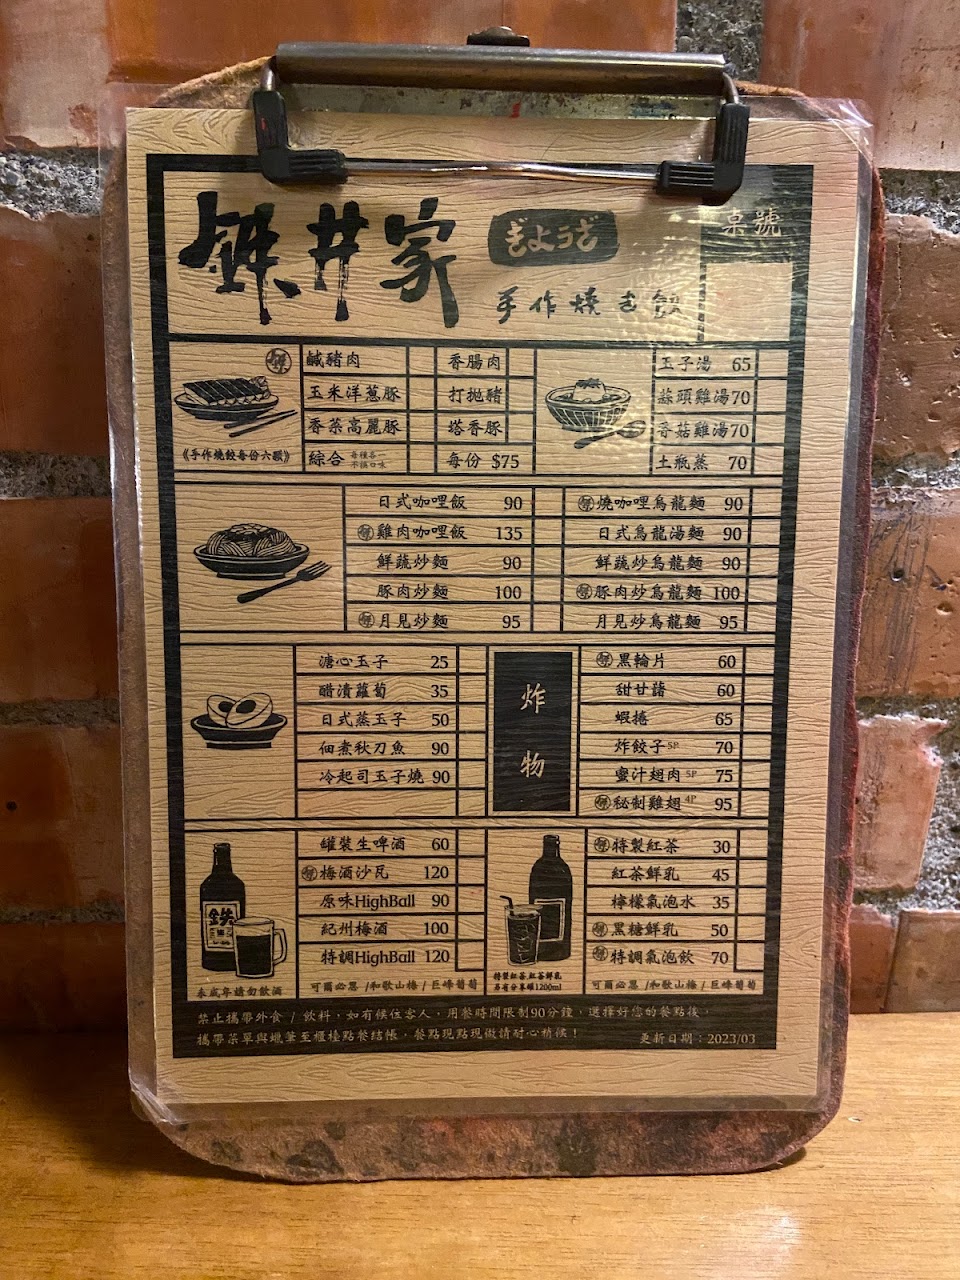 鉄井家
ぎょうざ
手作燒き餃
桌號
鹹豬肉
玉米洋蔥豚
香菜高麗豚
綜合 各種各一 不挑口味
香腸肉
打拋豬
塔香豚
每份 $75
《手作燒餃每份六顆》
玉子湯 65
蒜頭雞湯 70
香菇雞湯 70
土瓶蒸 70
日式咖哩飯 90
雞肉咖哩飯 135
鮮蔬炒麵 90
豚肉炒麵 100
月見炒麵 95
燒咖哩烏龍麵 90
日式烏龍湯麵 90
鮮蔬炒烏龍麵 90
豚肉炒烏龍麵 100
月見炒烏龍麵 95
溏心玉子 25
醋漬蘿蔔 35
日式蒸玉子 50
佃煮秋刀魚 90
冷起司玉子燒 90
炸物
黑輪片 60
甜甘藷 60
蝦捲 65
炸餃子 5P 70
蜜汁翅肉 5P 75
秘制雞翅 4P 95
罐裝生啤酒 60
梅酒沙瓦 120
原味HighBall 90
紀州梅酒 100
特調HighBall 120
可爾必思 /和歌山梅 / 巨峰葡萄
鉄
未成年請勿飲酒
特製紅茶 30
紅茶鮮乳 45
檸檬氣泡水 35
黑糖鮮乳 50
特調氣泡飲 70
可爾必思 /和歌山梅 / 巨峰葡萄
特製紅茶.紅茶鮮乳
另有分享罐1200ml
禁止攜帶外食 / 飲料，如有候位客人，用餐時間限制90分鐘，選擇好您的餐點後，
攜帶菜單與蠟筆至櫃檯點餐結帳，餐點現點現做請耐心稍候！
更新日期：2023/03